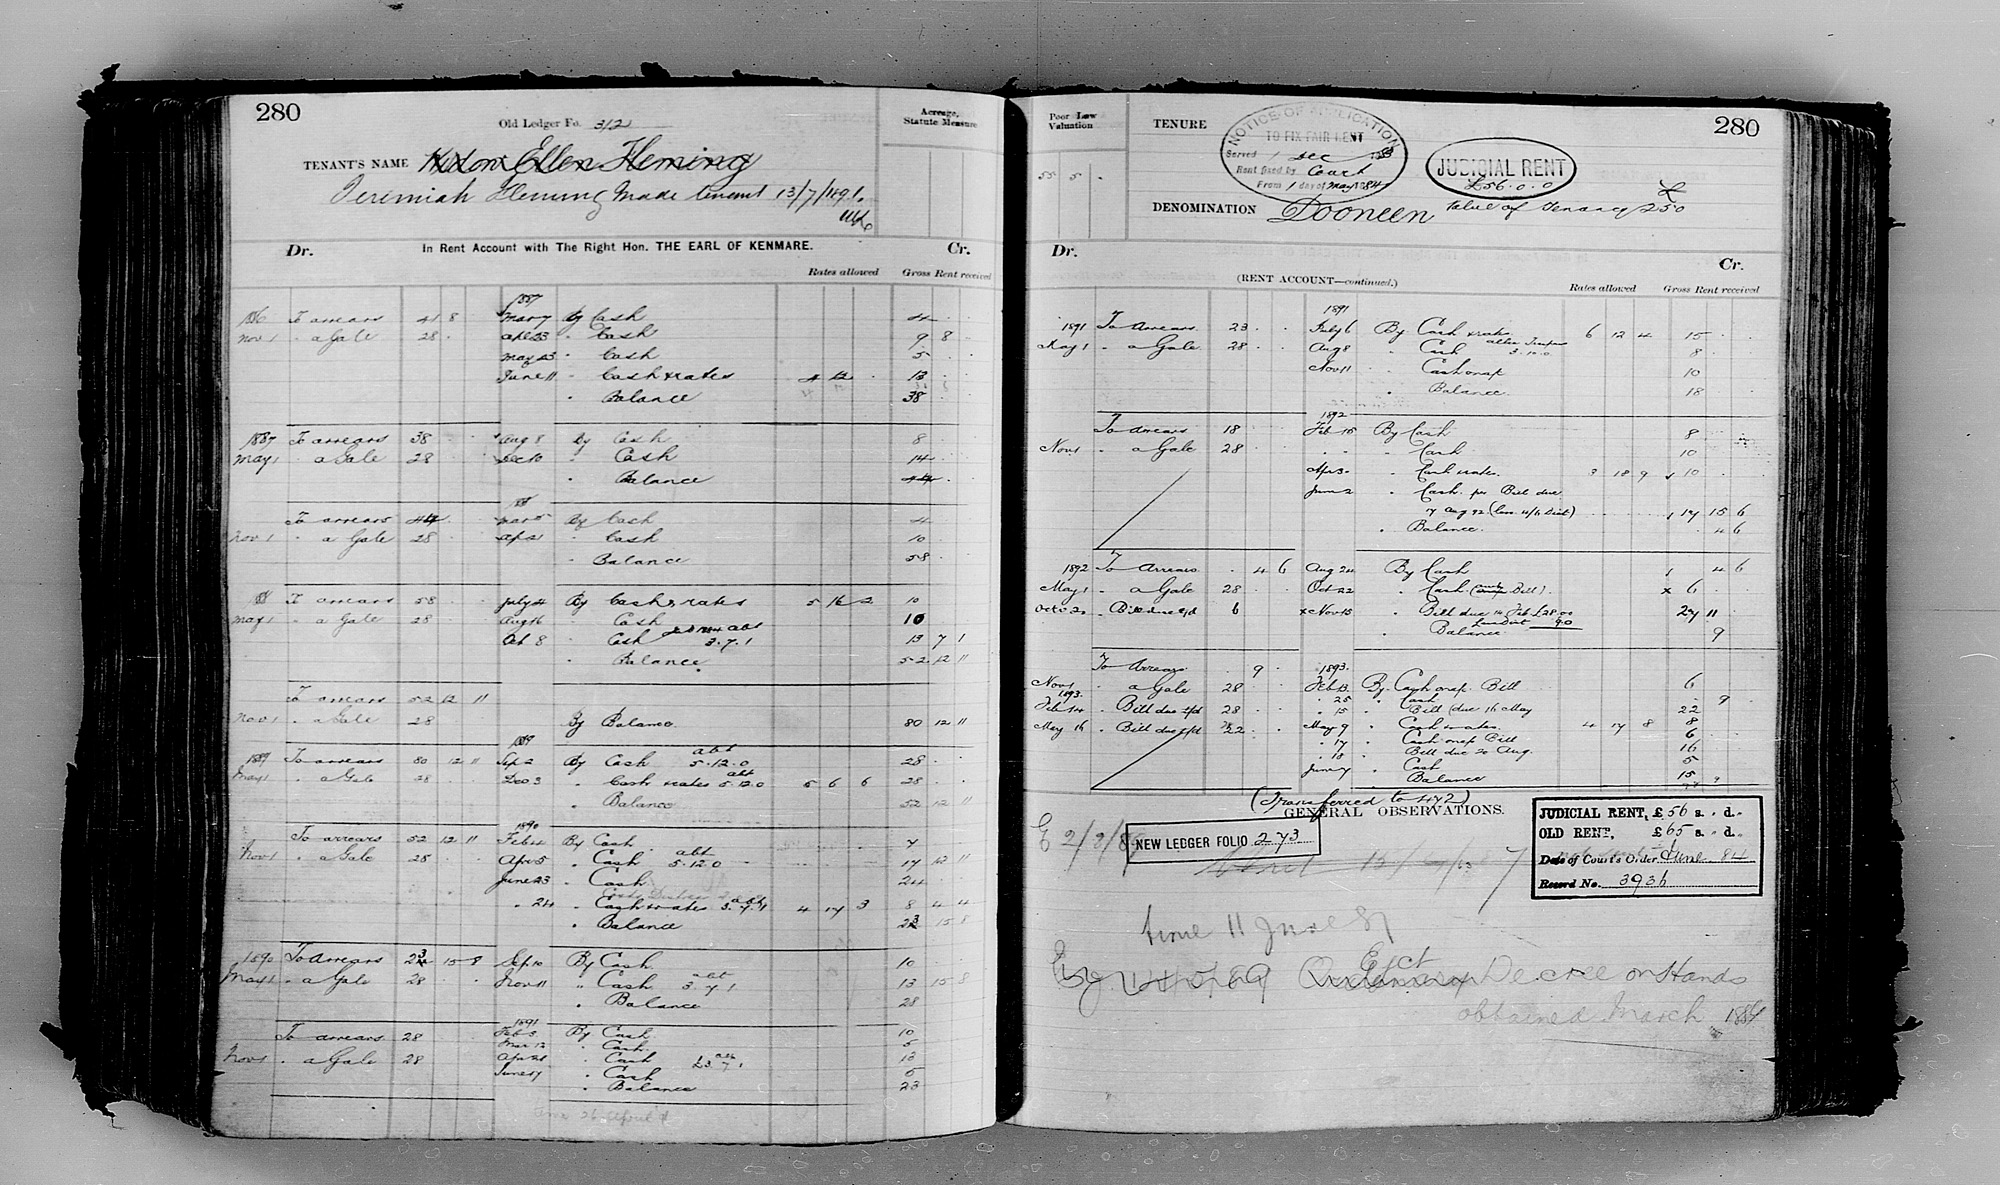 280
Old Ledger Fo. 312
Acreage, Statute Measure
TENANT'S NAME Ellen Fleming
Jeremiah Fleming Made tenant 13/7/1891.
Dr. In Rent Account with The Right Hon. THE EARL OF KENMARE. Cr.
Rates allowed Gross Rent received
1887
To arrears 41 8 Mar 7 By Cash 4
Nov 1 " a Gale 28 Apl 23 " Cash 9 8
May 23 " Cash 5
June 11 " Cash & rates 4 12 13
" Balance 38
1887 To arrears 38 Aug 8 By Cash 8
May 1 " a Gale 28 Dec 10 " Cash 14
" Balance 44
To arrears 44 Mar 5 By Cash 4
Nov 1 " a Gale 28 Ap 21 " Cash 10
Balance 58
To arrears 58 July 4 By Cash & rates 5 16 2 10
May 1 " a Gale 28 Aug 16 " Cash 10
Oct 8 " Cash 3.7.1 13 7 1
" Balance 52 12 11
To arrears 52 12 11
Nov 1 " a Gale 28 By Balance 80 12 11
1889
1889 To arrears 80 12 11 Sep 2 By Cash abt 5.12.0 28
May 1 " a Gale 28 Dec 3 " Cash & rates abt 5.12.0 5 6 6 28
" Balance 52 12 11
1890
To arrears 52 12 11 Feb 4 By Cash 7
Nov 1 " a Gale 28 Apr 5 " Cash abt 5.12.0 17 12 11
June 23 " Cash 24
" 24 " Cash & rates abt 3.7.1 4 17 3 8 4 4
" Balance 23 15 8
1890 To arrears 23 15 8 Sep 10 By Cash 10
May 1 " a Gale 28 Nov 11 " Cash abt 3.7.1 13 15 8
" Balance 28
1891
To arrears 28 Feb 3 By Cash 10
Mar 12 " Cash 5
Nov 1 " a Gale 28 Apr 21 " Cash abt £3.7.1 13
June 17 " Cash 5
" Balance 23
280
Poor Law Valuation
55 5
TENURE
NOTICE OF APPLICATION
TO FIX FAIR RENT
Served 1 Dec
Rent fixed by Court
From 1 day of May 1884
JUDICIAL RENT
£56.0.0
DENOMINATION Dooneen Value of tenancy £250
Dr. Cr.
(RENT ACCOUNT—continued.)
Rates allowed Gross Rent received
1891
1891 To Arrears 23 July 6 By Cash & rates 6 12 4 15
May 1 " a Gale 28 Aug 8 " Cash 3.10.0 8
Nov 11 " Cash 10
" Balance 18
1892
To Arrears 18 Feb 16 By Cash 8
Nov 1 " a Gale 28 " Cash 10
Apr 3 " Cash & rates 3 18 9 10
June 2 " Cash per Bill due
7 Aug 92 17 15 6
" Balance 4 6
1892 To Arrears 4 6 Aug 24 By Cash 4 6
May 1 " a Gale 28 Oct 22 " Cash 6
Octr 20 " Bill due 6 Nov 15 " Bill due 14 Feb £28.00 27 11
Balance 9
To Arrears 9 1893
Nov 1 " a Gale 28 Feb 13 By Cash Bill 6
1893 " 25 " Cash 9
Feb 14 " Bill due 28 " 15 " Bill (due 16 May 22
May 16 " Bill due 22 May 9 " Cash & rates 4 17 8 8
" 17 " Cash Bill 6
" 18 Bill due 20 Aug. 16
June 7 " Cash 5
Balance 15
(Transferred to 472)
GENERAL OBSERVATIONS.
NEW LEDGER FOLIO 273
JUDICIAL RENT, £56 s. d.
OLD RENT, £65 s. d.
Date of Court's Order June 84
Record No. 3936
time 11 June 87
Eject Decree on Hands
obtained March